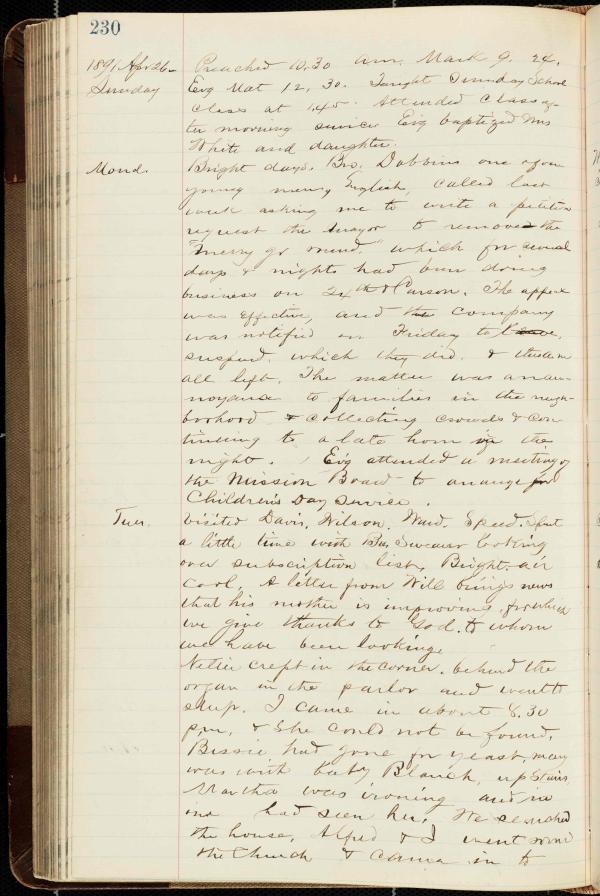 230
1891 Apr 26 - Preached 10.30 am, Mark 9. 24,
Sunday Evg Mat 12, 30. Taught Sunday School
class at 1.45. Attended class af-
ter morning service Evg baptized Mrs
White and daughter.
Mond. Bright days. Bro. Dobbins one of our
young men, English, called last
week asking me to write a petition
request the Mayor to remove the
"merry go round," which for several
days & nights had been doing
business on 24th & Carson. The appeal
was effective, and the company
was notified on Friday to leave,
suspend, which they did, &
all left. The matter was an an-
noyance to families in the neigh-
borhood & collecting crowds & con-
tinuing to a late hour in the
night. Evg attended a meeting of
the Mission Board to arrange for
Children's Day service.
Tues. Visited Davis, Wilson, Ward, Speed. Spent
a little time with Bro. looking
over subscription list. Bright. air
cool. A letter from Will brings news
that his mother is improving, for which
we give thanks to God, to whom
we have been looking.
Nettie crept in the corner, behind the
organ in the parlor and went to
sleep. I came in about 8.30
p.m, & she could not be found,
Bessie had gone for yeast, may
was with baby Blanch, upstairs
Martha was ironing and no
one had seen her. We searched
the house, Alfred & I went round
the Church & came in to